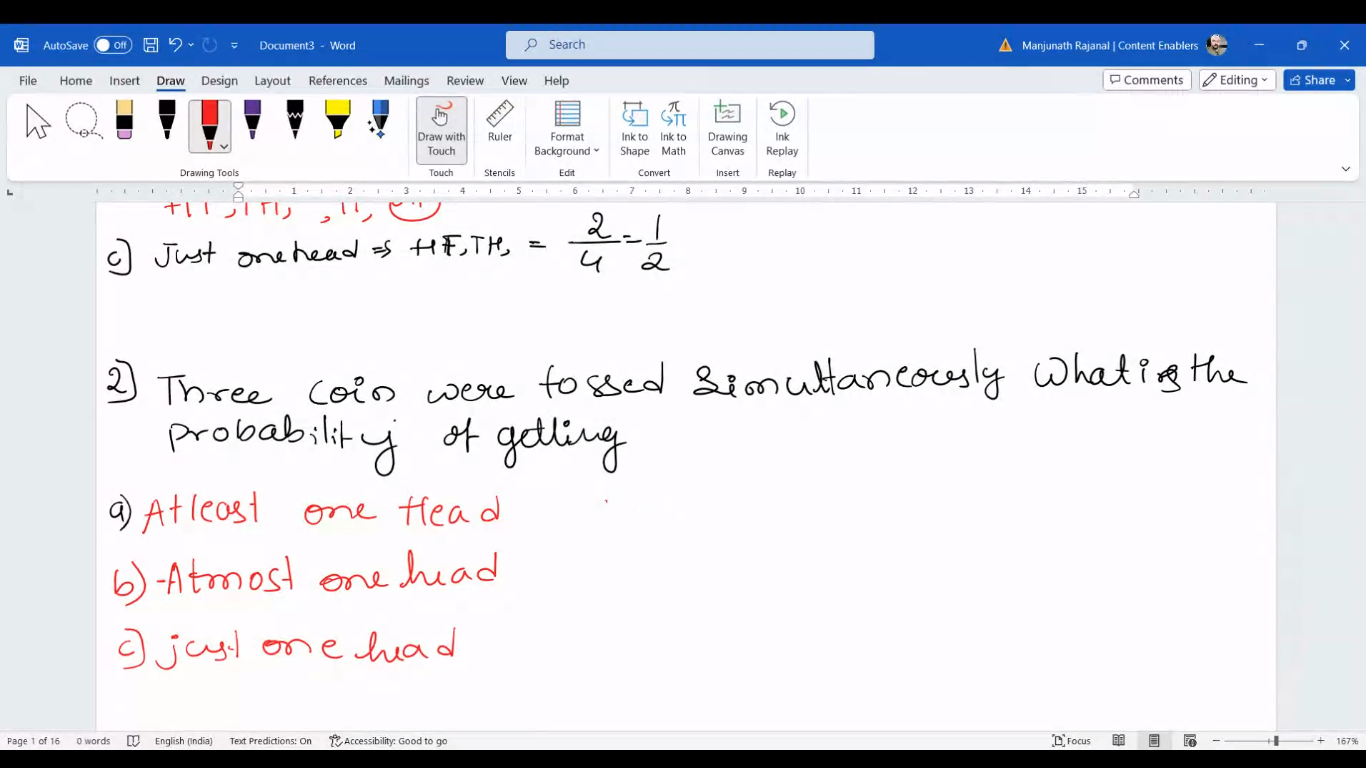 AutoSave Off Document3 - Word Search Manjunath Rajanal | Content Enablers
File Home Insert Draw Design Layout References Mailings Review View Help Comments Editing Share
Draw with Touch Ruler Format Background Ink to Shape Ink to Math Drawing Canvas Ink Replay
Drawing Tools Touch Stencils Edit Convert Insert Replay
1 2 3 4 5 6 7 8 9 10 11 12 13 14 15
c) Just one head => HT, TH, = 2/4 = 1/2
2) Three coin were tossed simultaneously What is the
probability of getting
a) Atleast one Head
b) Atmost one head
c) just one head
Page 1 of 16 0 words English (India) Text Predictions: On Accessibility: Good to go Focus 167%